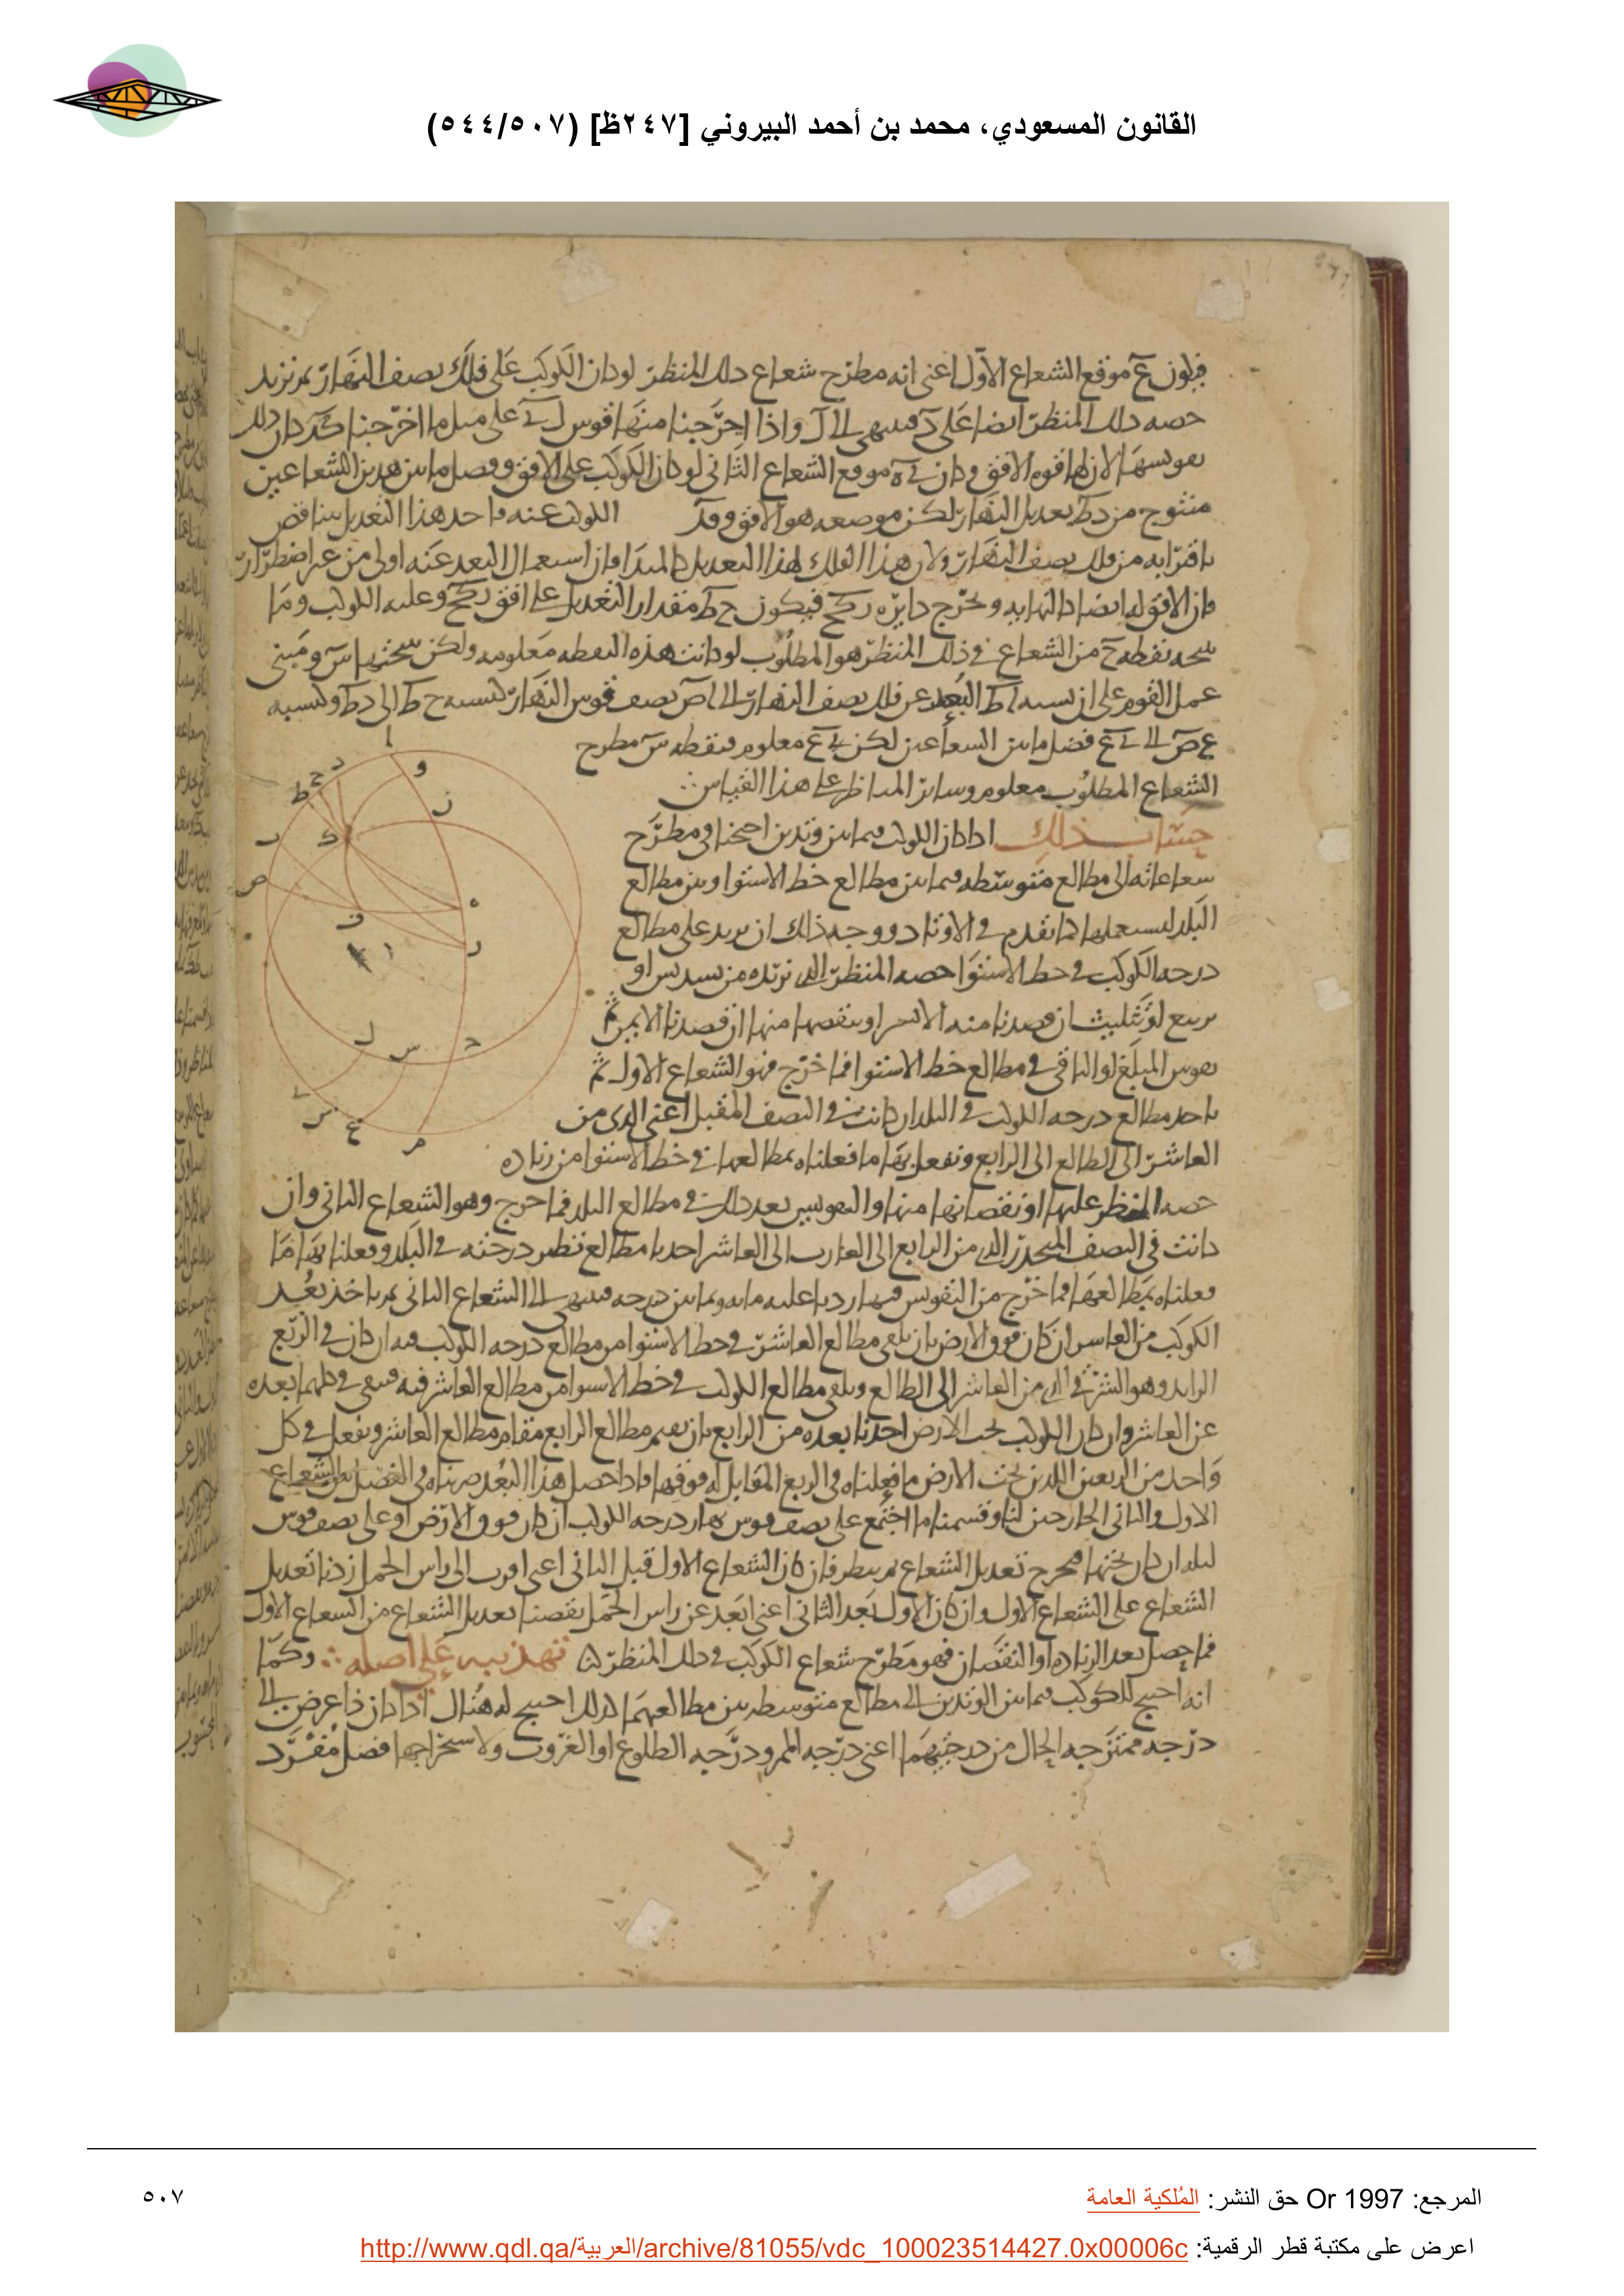 القانون المسعودي، محمد بن أحمد البيروني [٢٤٧ظ] (٥٠٧/٥٤٤)
فيكون ع موقع الشعاع الاول اعني انه مطرح شعاع ذلك المنظر لو كان الكوكب على فلك نصف النهار ثم نزيد
حصه ذلك المنظر ايضا على واذا اخرجنا منها قوس على مثل ما اخرجنا كان ذلك
الافق وكان موقع الشعاع الثاني لو كان الكوكب على الافق وفصل ما بين هذين الشعاعين
من تعديل النهار لكن موضعه هو الافق وقد الكوكب عنه فاحد هذا التعديل يتناقص
باقترابه من فلك نصف النهار ولان هذا الفلك لهذا التعديل كالمبدا فان استعمال البعد عنه اولى من غير اضطرار
فان الافق له ايضا كالنهايه ونخرج دايره ركح فيكون ح ط مقدار التعديل على افق ركح وعليه الكوكب وما
نقطه ح من الشعاع في ذلك المنظر هو المطلوب لو كانت هذه النقطه معلومه ولكن س ومبنى
عمل القوم على ان نسبه ا ط البعد عن فلك نصف النهار الى ا ص نصف قوس النهار كنسبه ح ط الى د ط وكنسبه
ع ص الى ع فضل ما بين الشعاعين لكن ع معلوم فنقطه س مطرح
الشعاع المطلوب معلوم وساير المناظر على هذا القياس
حساب ذلك اذا كان الكوكب فيما بين وتدين احتجنا في مطرح
شعاعاته الى مطالع متوسطه فيما بين مطالع خط الاستوا وبين مطالع
البلد ليستعملها كما تقدم في الاوتاد ووجه ذلك ان نزيد على مطالع
درجه الكوكب في خط الاستوا حصه المنظر الذي نريده من تسديس او
تربيع او تثليث ان قصدنا منه الايسر او ننقصها منها ان قصدنا الايمن ثم
نقوس المبلغ او الباقي في مطالع خط الاستوا فما خرج فهو الشعاع الاول ثم
ناخذ مطالع درجه الكوكب في البلد ان كانت في النصف المقبل اعني الذي من
العاشر الى الطالع الى الرابع ونفعل بها ما فعلناه بمطالعها في خط الاستوا من زياده
حصه المنظر عليها او نقصانها منها والتقويس بعد ذلك في مطالع البلد فما خرج وهو الشعاع الثاني وان
كانت في النصف المنحدر الذي من الرابع الى الغارب الى العاشر اخذنا مطالع نظير درجته في البلد وفعلنا بها ما
فعلناه بمطالعها فما خرج من التقويس زدنا عليه مايه وثمانين درجه فينتهي الى الشعاع الثاني ثم ناخذ بعد
الكوكب من العاشر ان كان فوق الارض بان نلقي مطالع العاشر في خط الاستوا من مطالع درجه الكوكب فيه ان كان في الربع
الزايد وهو الشرقي الذي من العاشر الى الطالع ونلقي مطالع الكوكب في خط الاستوا من مطالع العاشر فيه فيبقى في كليهما بعده
عن العاشر وان كان الكوكب تحت الارض اخذنا بعده من الرابع بان نقيم مطالع الرابع مقام مطالع العاشر ونفعل في كل
واحد من الربعين اللذين تحت الارض ما فعلناه في الربع المقابل له فوقها فاذا حصل هذا البعد ضربناه في الفضل بين الشعاع
الاول والثاني الخارجين لنا وقسمنا ما اجتمع على نصف قوس نهار درجه الكوكب ان كان فوق الارض او على نصف قوس
ليله ان كان تحتها فيخرج تعديل الشعاع ثم ننظر فان كان الشعاع الاول قبل الثاني اعني اقرب الى راس الحمل زدنا تعديل
الشعاع على الشعاع الاول وان كان الاول بعد الثاني اعني ابعد عن راس الحمل نقصنا تعديل الشعاع من الشعاع الاول
فما حصل بعد الزياده او النقصان فهو مطرح شعاع الكوكب في ذلك المنظر تهذيبه على اصله وكما
انه احتيج للكوكب فيما بين الوتدين الى مطالع متوسطه بين مطالعهما كذلك احتيج له هنال اذا كان ذا عرض الى
درجه ممتزجه الحال من درجتيهما اعني درجه الممر ودرجه الطلوع او الغروب ولاستخراجها فضل مفرد
المرجع: Or 1997 حق النشر: المُلكية العامة
٥٠٧
اعرض على مكتبة قطر الرقمية: http://www.qdl.qa/العربية/archive/81055/vdc_100023514427.0x00006c